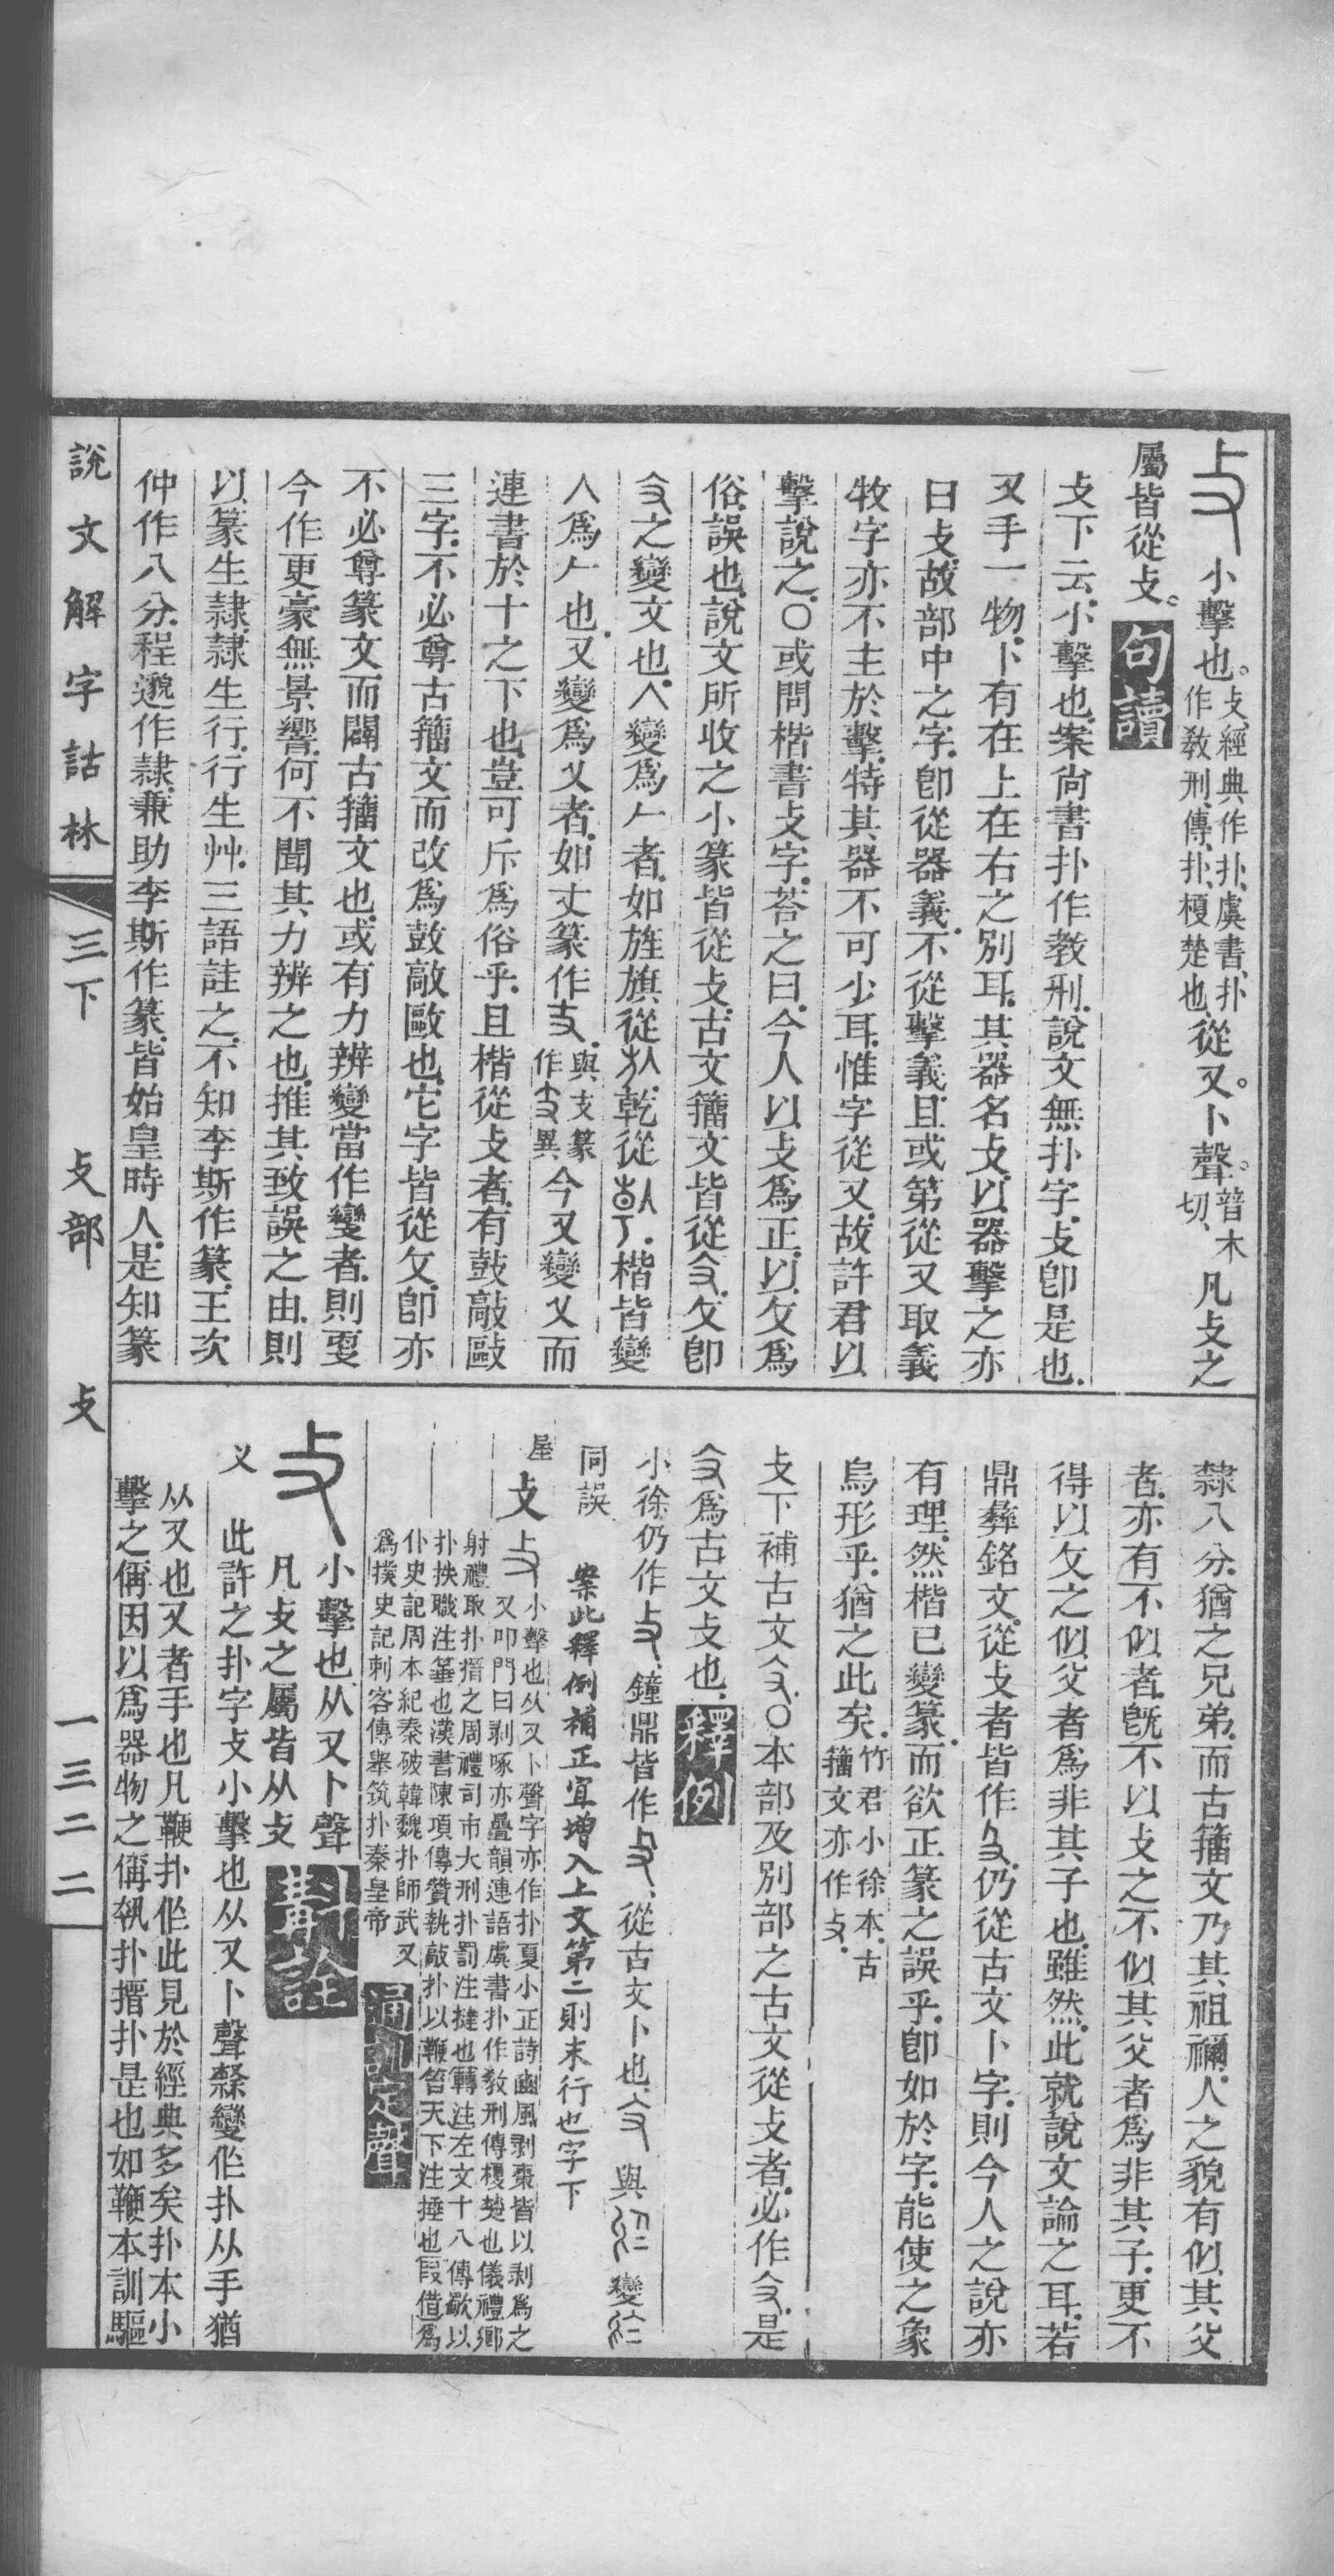 小擊也。攴、經典作扑、虞書、扑作敎刑、傳、扑、榎楚也、從又。卜聲。普木切、凡攴之
屬皆從攴。句讀
攴下云、小擊也、案尙書扑作敎刑、說文無扑字、攴卽是也、
又手一物、卜有在上在右之別耳、其器名攴、以器擊之亦
曰攴、故部中之字、卽從器義、不從擊義、且或第從又取義
牧字亦不主於擊、特其器不可少耳、惟字從又、故許君以
擊說之、〇或問楷書攴字、荅之曰、今人以攴爲正、以攵爲
俗、誤也、說文所收之小篆皆從攴、古文籒文皆從、攵卽
之變文也、人變爲𠂉者、如旌旗從㫃、乾從倝、楷皆變
人爲𠂉也、又變爲乂者、如丈篆作、與支篆作異今又變乂而
連書於十之下也、豈可斥爲俗乎、且楷從攴者、有鼓敲毆
三字、不必尊古籒文而改爲敼敵歐也、它字皆從攵、卽亦
不必尊篆文而闢古籒文也、或有力辨變當作變者、則㪅
今作更、豪無景響、何不聞其力辨之也、推其致誤之由、則
以篆生隸、隸生行、行生艸、三語註之、不知李斯作篆、王次
仲作八分、程邈作隸、兼助李斯作篆、皆始皇時人、是知篆
隸八分、猶之兄弟、而古籒文乃其祖禰、人之貌有似其父
者、亦有不似者、旣不以攴之不似其父者爲非其子、更不
得以攵之似父者爲非其子也、雖然、此就說文論之耳、若
鼎彝銘文、從攴者皆作、仍從古文卜字、則今人之說亦
有理、然楷已變篆、而欲正篆之誤乎、卽如於字、能使之象
烏形乎、猶之此矣、竹君小徐本、古籒文亦作攴、
攴下補古文、〇本部及別部之古文從攴者、必作、是
爲古文攴也、釋例
小徐仍作、鐘鼎皆作、從古文卜也、與變
同誤　案此釋例補正宜增入上文第二則末行也字下
屋攴　小擊也从又卜聲字亦作扑夏小正詩豳風剥棗皆以剥爲之
又叩門曰剥啄亦疊韻連語虞書扑作敎刑傳榎楚也儀禮鄕
射禮取扑搢之周禮司市大刑扑罰注撻也轉注左文十八傳歜以
扑抶職注箠也漢書陳項傳贊執敲扑以鞭笞天下注捶也假借爲
仆史記周本紀秦破韓魏扑師武又
爲撲史記刺客傳舉筑扑秦皇帝　通訓定聲
小擊也从又卜聲
凡攴之屬皆从攴　斠詮
义　此許之扑字攴小擊也从又卜聲隸變作扑从手猶
从又也又者手也凡鞭扑作此見於經典多矣扑本小
擊之偁因以爲器物之偁執扑搢扑是也如鞭本訓驅
說文解字詁林　三下　攴部　攴　一三二二